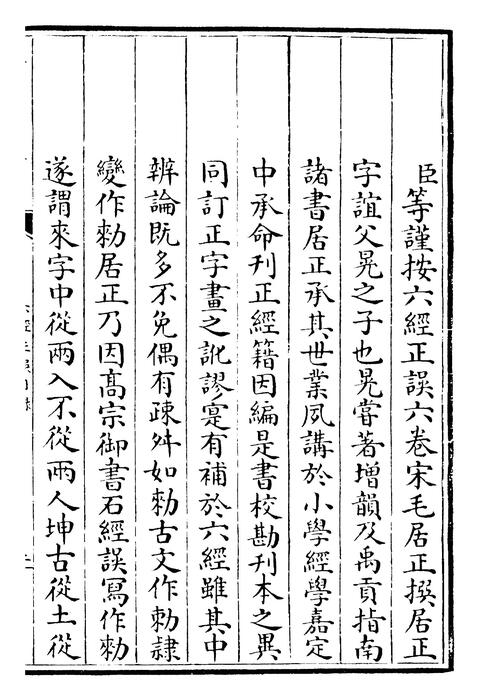 臣等謹按六經正誤六卷宋毛居正撰居正
字誼父晃之子也晃嘗著增韻及禹貢指南
諸書居正承其世業夙講於小學經學嘉定
中承命刊正經籍因編是書校勘刊本之異
同訂正字畫之訛謬寔有補於六經雖其中
辨論既多不免偶有疎舛如勑古文作勅隸
變作勑居正乃因髙宗御書石經誤冩作勑
遂謂來字中從兩入不從兩人坤古從土從